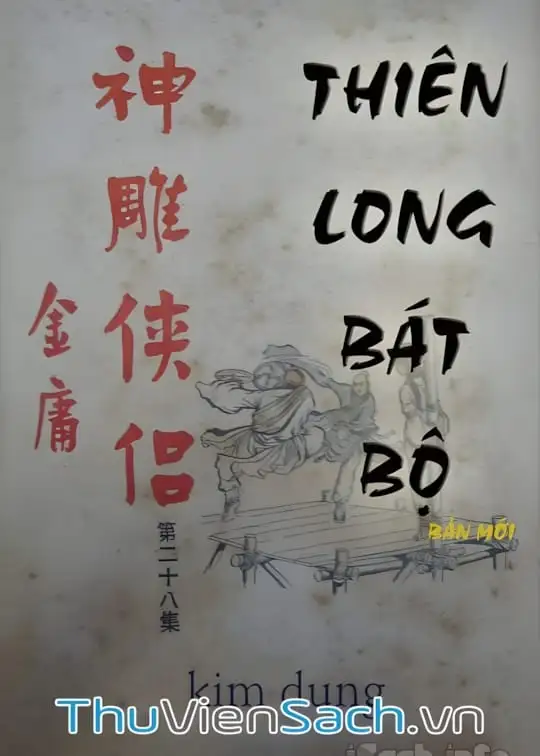 THIÊN
LONG
BÁT
BỘ
BẢN MỚI
神雕侠侣
金庸
第二十八集
kim dung
ThuVienSach.vn